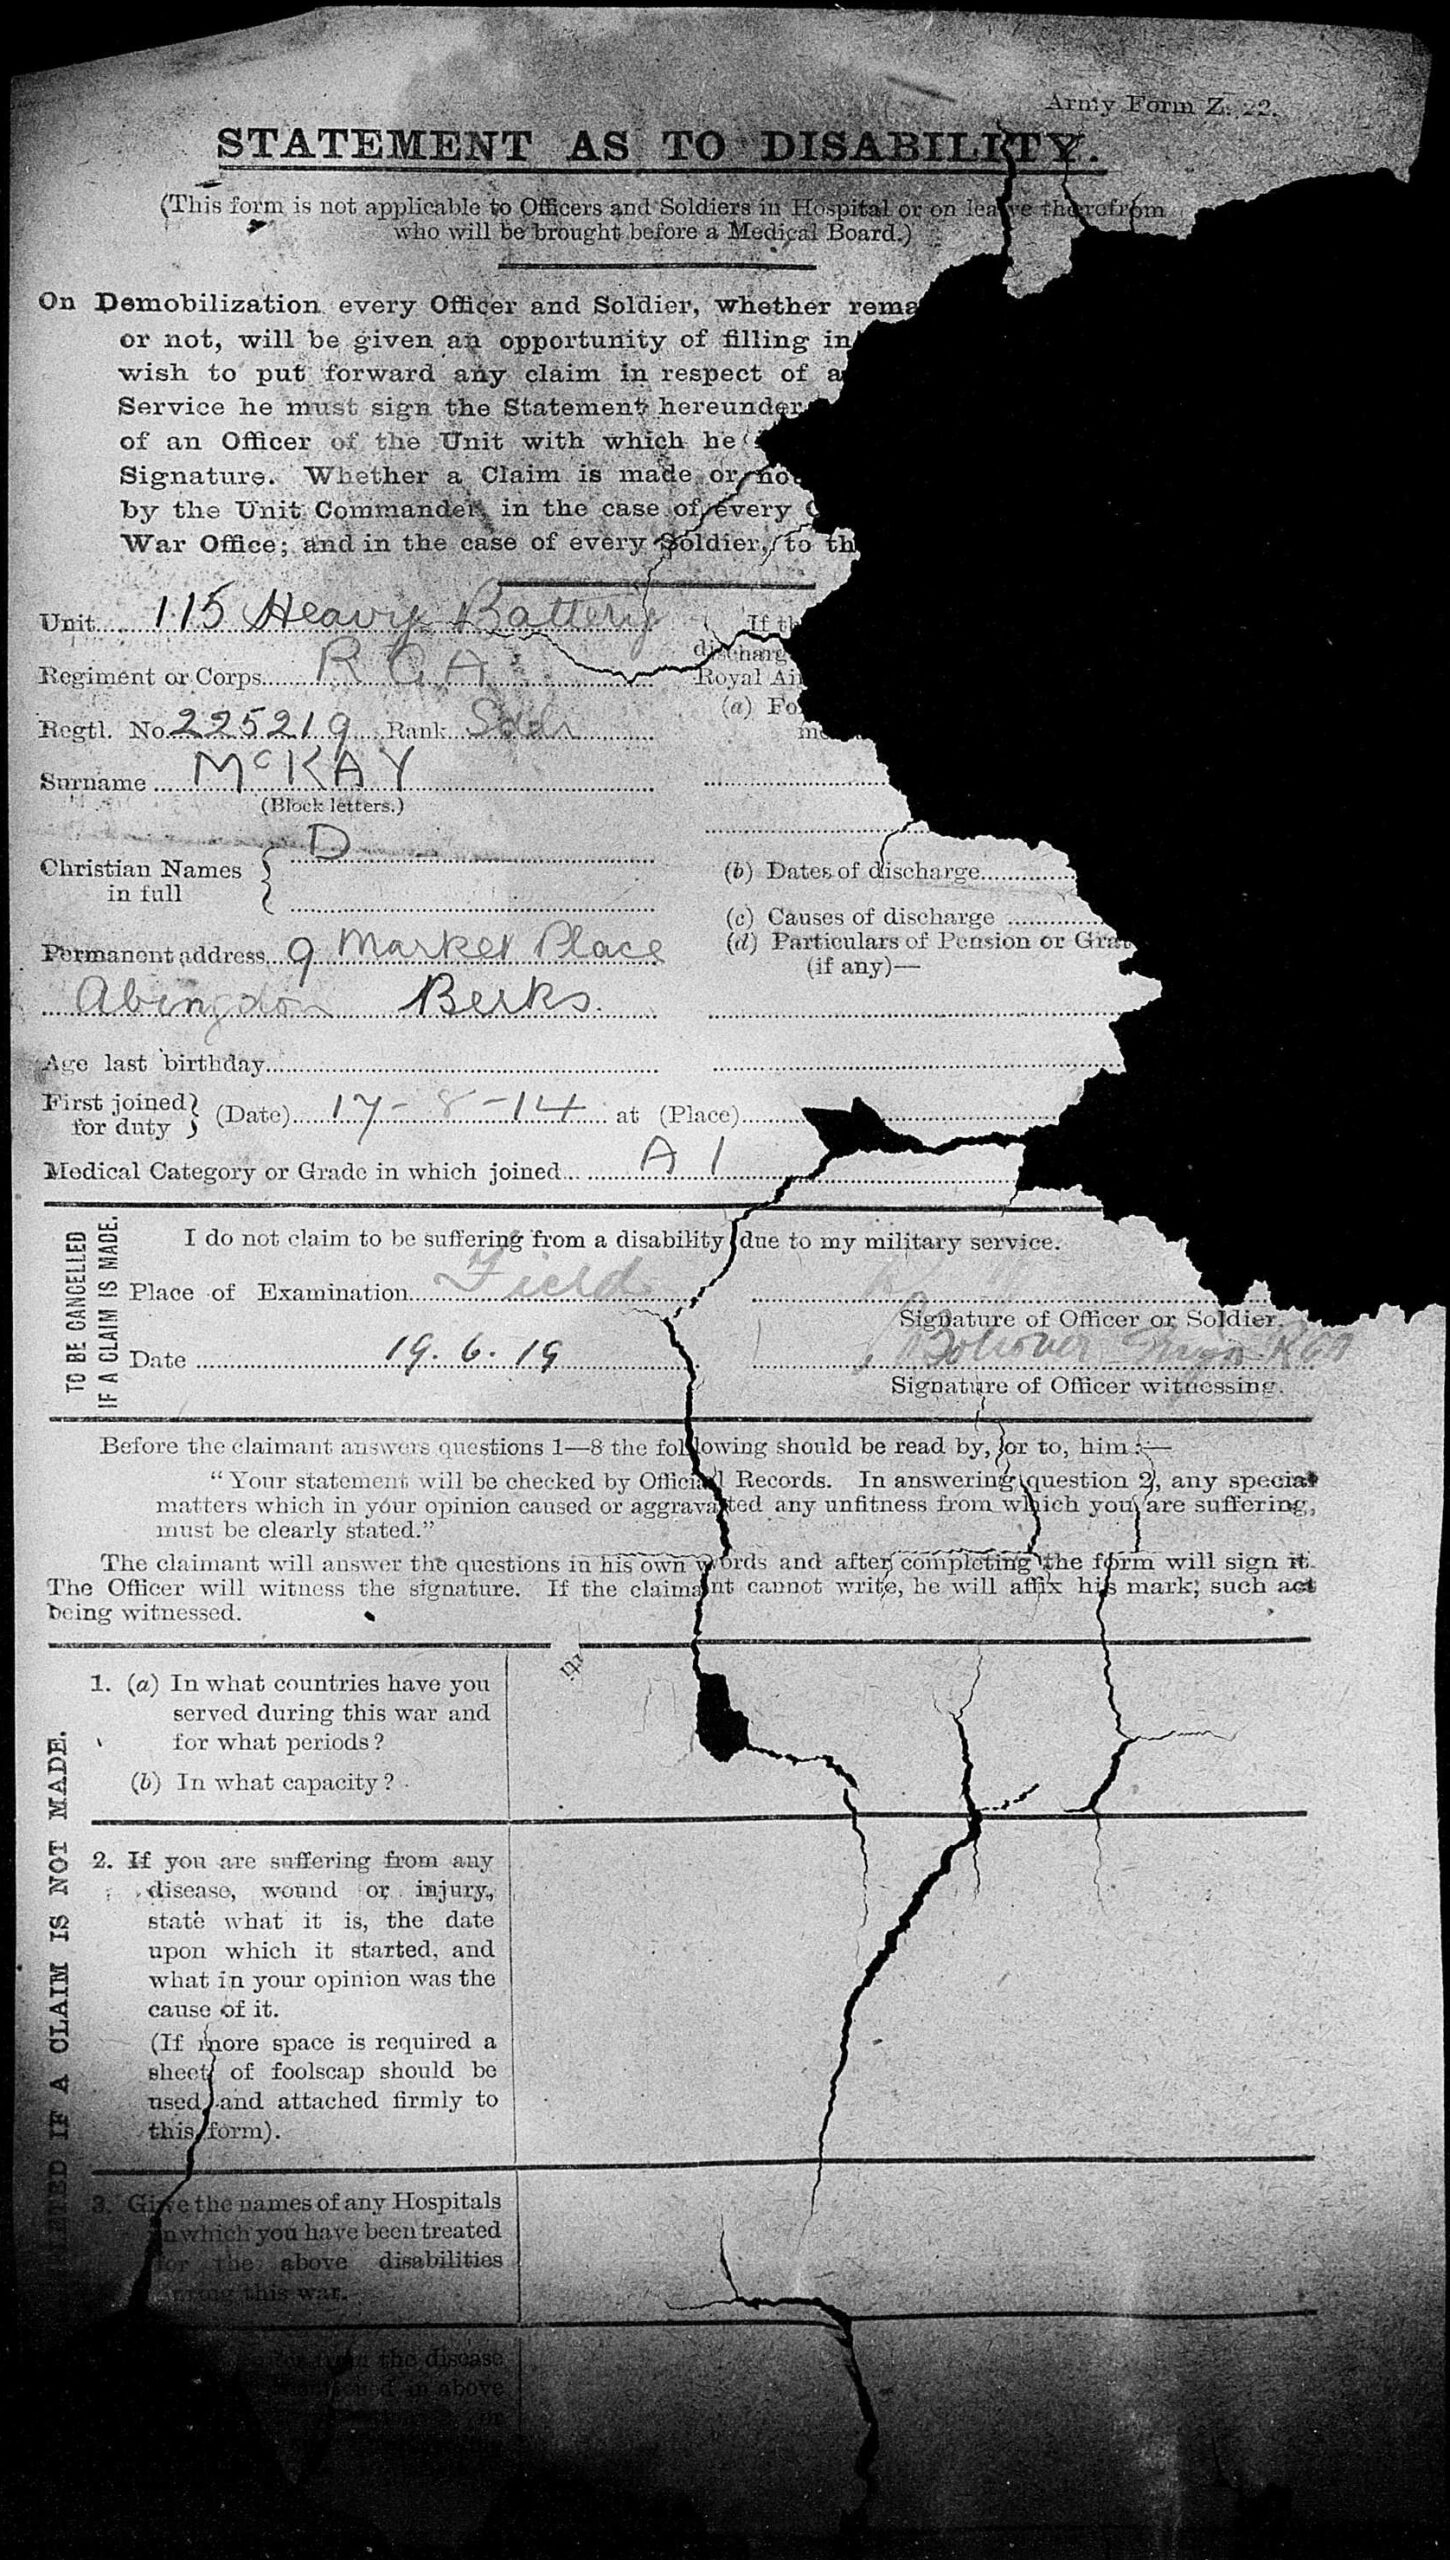 Army Form Z. 22.
STATEMENT AS TO DISABILITY.
(This form is not applicable to Officers and Soldiers in Hospital or on leave therefrom
who will be brought before a Medical Board.)
On Demobilization every Officer and Soldier, whether rema
or not, will be given an opportunity of filling in
wish to put forward any claim in respect of a
Service he must sign the Statement hereunder
of an Officer of the Unit with which he
Signature. Whether a Claim is made or not
by the Unit Commander, in the case of every
War Office; and in the case of every Soldier, to th
Unit 115 Heavy Battery
If th
discharg
Regiment or Corps R G A
Royal Ai
(a) Fo
Regtl. No. 225219 Rank Saddr
me
Surname McKAY
(Block letters.)
Christian Names D
in full
(b) Dates of discharge
(c) Causes of discharge
Permanent address 9 Market Place
(d) Particulars of Pension or Grat
(if any)—
Abingdon Berks.
Age last birthday
First joined (Date) 17-8-14 at (Place)
for duty
Medical Category or Grade in which joined A 1
TO BE CANCELLED
IF A CLAIM IS MADE.
I do not claim to be suffering from a disability due to my military service.
Place of Examination Field
Signature of Officer or Soldier.
Date 19.6.19
RGA
Signature of Officer witnessing.
Before the claimant answers questions 1—8 the following should be read by, or to, him:—
"Your statement will be checked by Official Records. In answering question 2, any special
matters which in your opinion caused or aggravated any unfitness from which you are suffering,
must be clearly stated."
The claimant will answer the questions in his own words and after completing the form will sign it.
The Officer will witness the signature. If the claimant cannot write, he will affix his mark; such act
being witnessed.
IF A CLAIM IS NOT MADE.
1. (a) In what countries have you
served during this war and
for what periods?
(b) In what capacity?
2. If you are suffering from any
disease, wound or injury,
state what it is, the date
upon which it started, and
what in your opinion was the
cause of it.
(If more space is required a
sheet of foolscap should be
used and attached firmly to
this form).
3. Give the names of any Hospitals
in which you have been treated
for the above disabilities
during this war.
the disease
in above
or